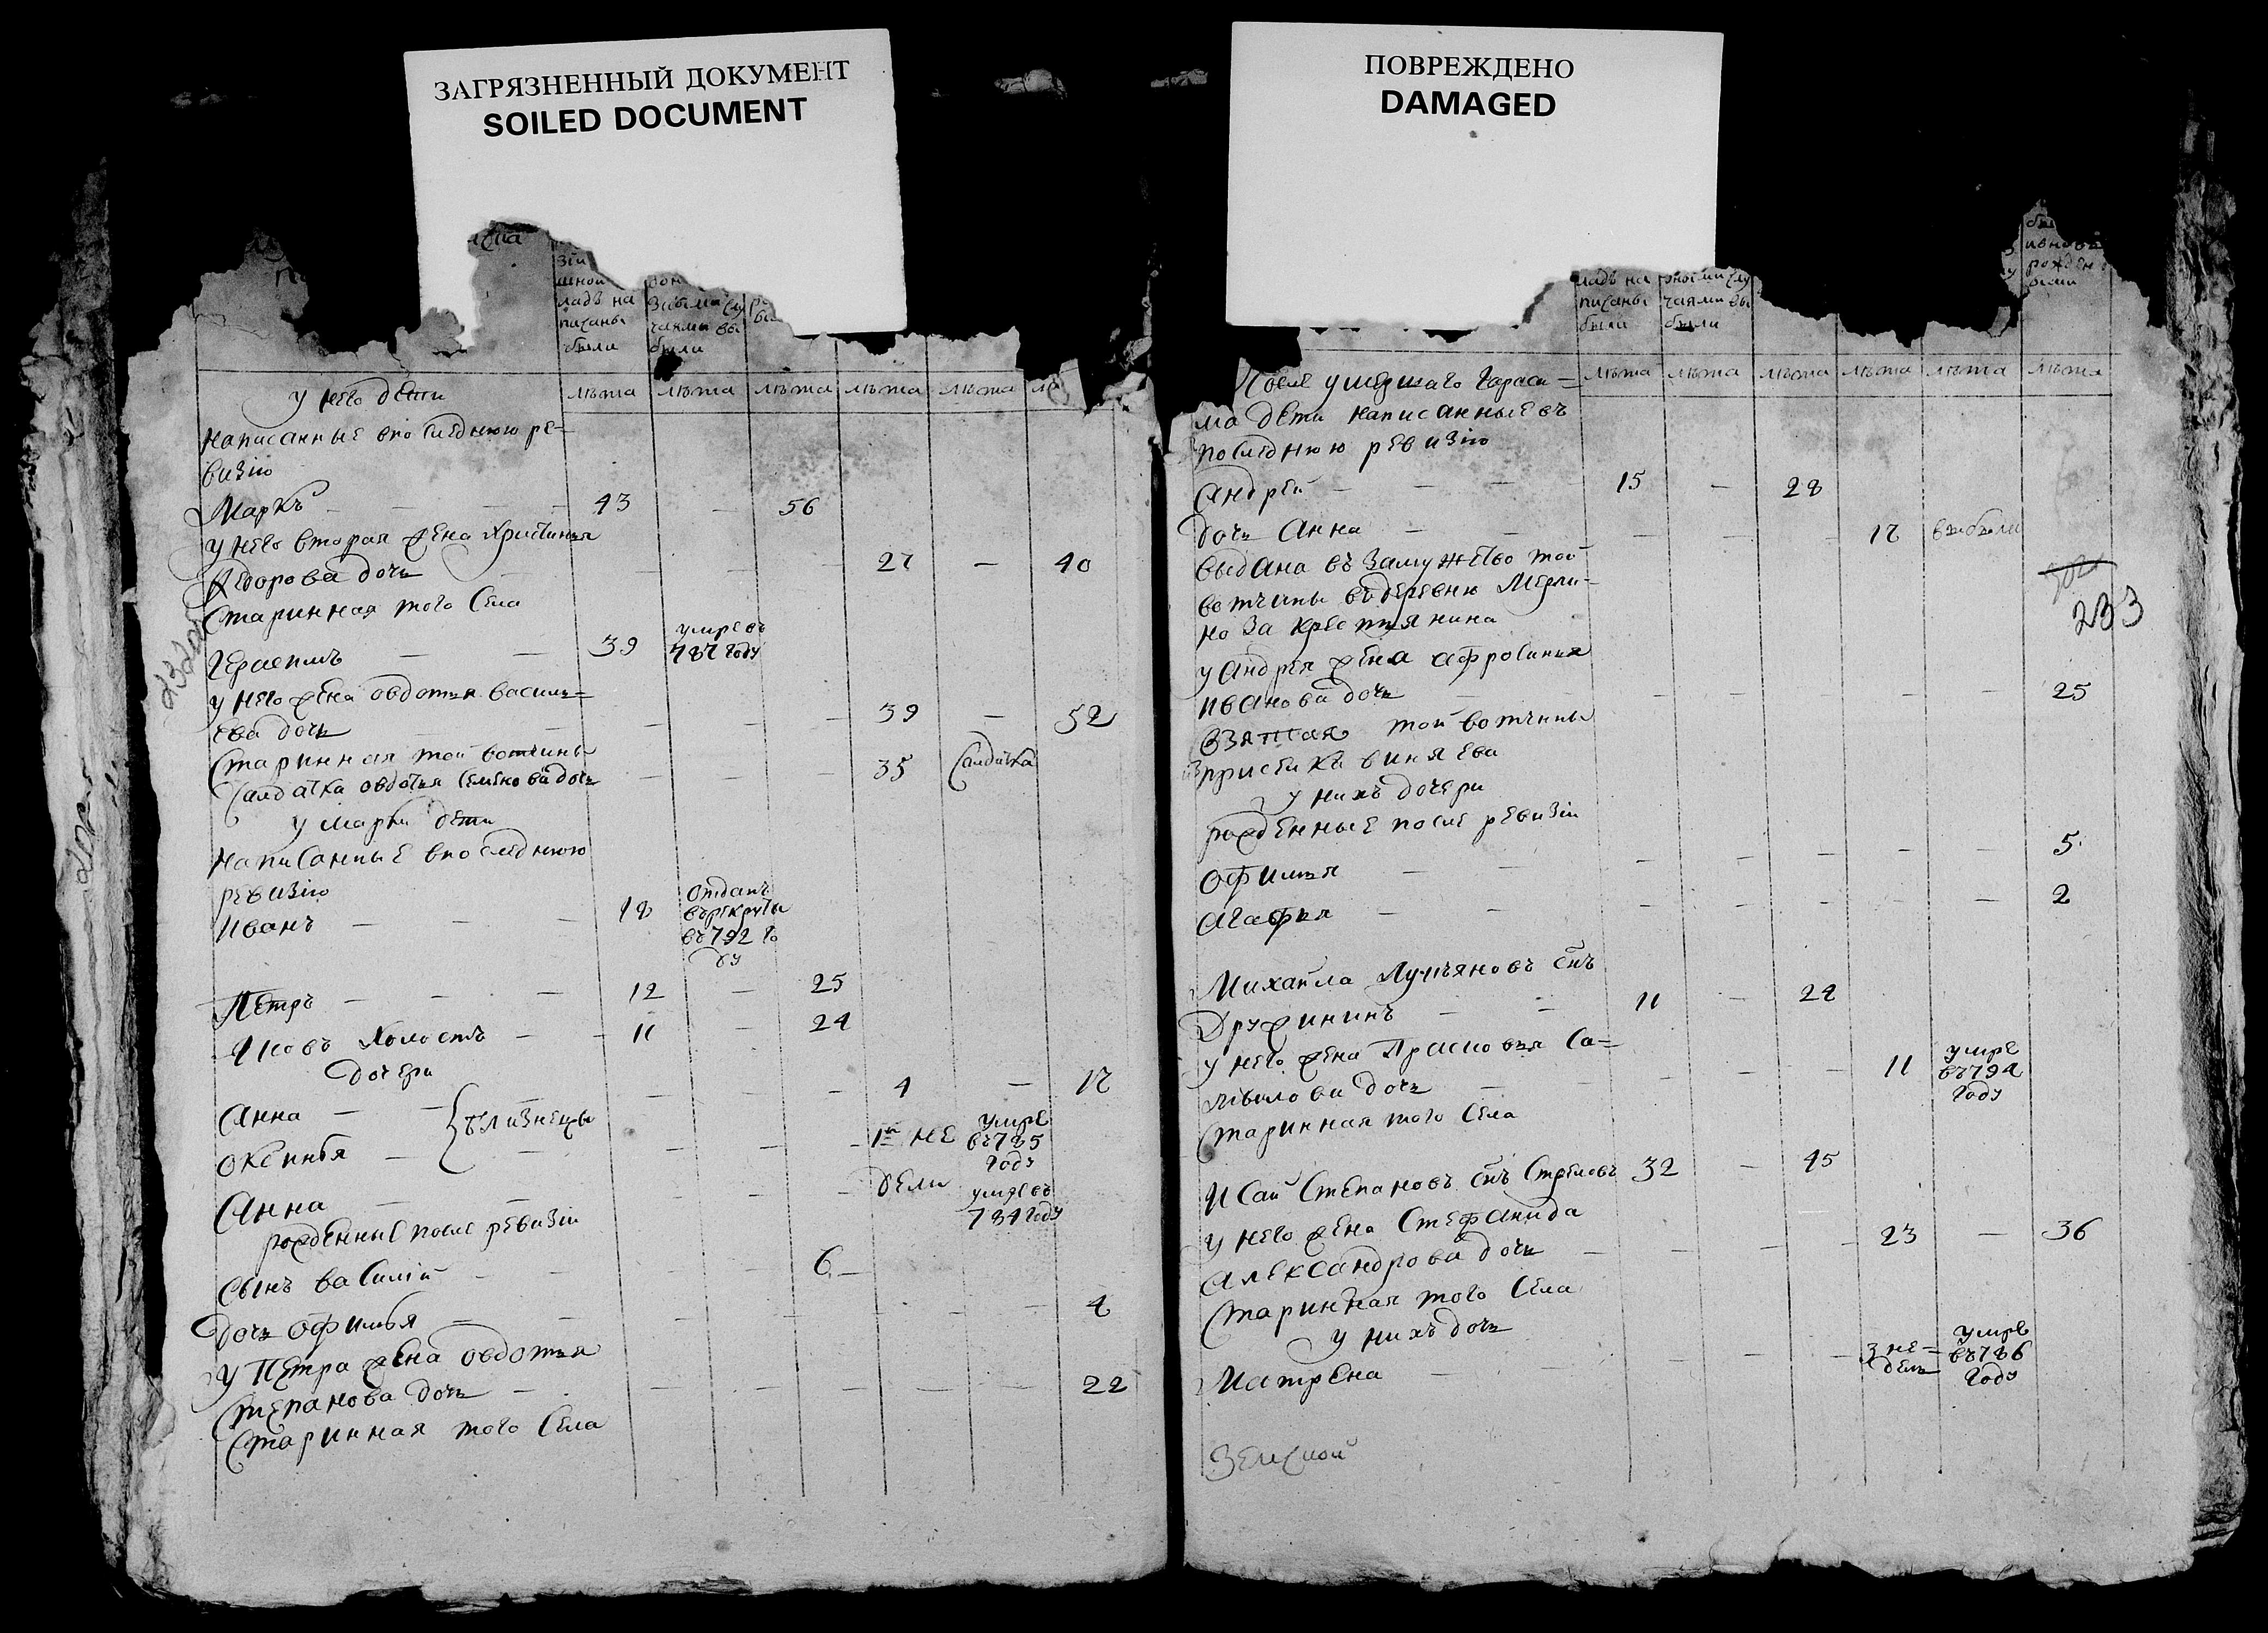 ЗАГРЯЗНЕННЫЙ ДОКУМЕНТ
SOILED DOCUMENT
шной
ладъ на
писаны
были
чаями вы
были
лѣта лѣта лѣта лѣта лѣта
у него дети
написанные впоследнюю ре=
визію
Маркъ — — — 43 — 56
у него вторая жена Христинья
Федорова дочь — — — — 27 — 40
Старинная того села
Герасимъ — — 39 умре въ 787 году
у него жена овдотья василь=
ева дочь — — — 39 — 52
Старинная той вотчины
Салдатка овдотья Семенова дочь — — — 35 Салдатка
у марки дети
написанные впоследнюю
ревизію
Иванъ — — — 18 отданъ
въ рекруты
въ 792 го
ду
Петръ — — — 12 — 25
Яковъ холостъ — — 11 — 24
дочери
Анна — — близнецы — — — 4 — 17
Оксинья — — — — — 1й не умре
въ 785
году
Анна — — — — — дели умре въ
784 году
рожденные после ревизіи
сынъ василій — — — 6 —
дочь офимья — — — — — — 4
у Петра жена овдотья
степанова дочь — — — — — — 22
Старинная того села
ПОВРЕЖДЕНО
DAMAGED
ладъ на
писаны
были
чаями вы
были
рожден
лѣта лѣта лѣта лѣта лѣта лѣта
После умершаго Гараси=
ма дети написанные въ
последнюю ревизію
Андрей — — — 15 — 28
дочь Анна — — — — 17 выбыли
выдана въ замужство той
вотчины въ деревню Мерли=
но за крестьянина
233
у андрея жена афросинья
иванова дочь — — — — — — 25
взятая той вотчины
у нихъ дочери
рожденные после ревизіи
офимья — — — — — — 5
агафья — — — — — — 2
Михайла Лукьяновъ снъ
Дружининъ — — 11 — 24
у него жена Прасковья Са=
мойлова дочь — — — — 11 умре
въ 794
году
Старинная того села
Исай Степановъ снъ Стреловъ 32 — 45
у него жена Стефанида
Александрова дочь — — — — 23 — 36
Старинная того села
у нихъ дочь
Матрена — — 3 не=
дель умре
въ 786
году
Земской